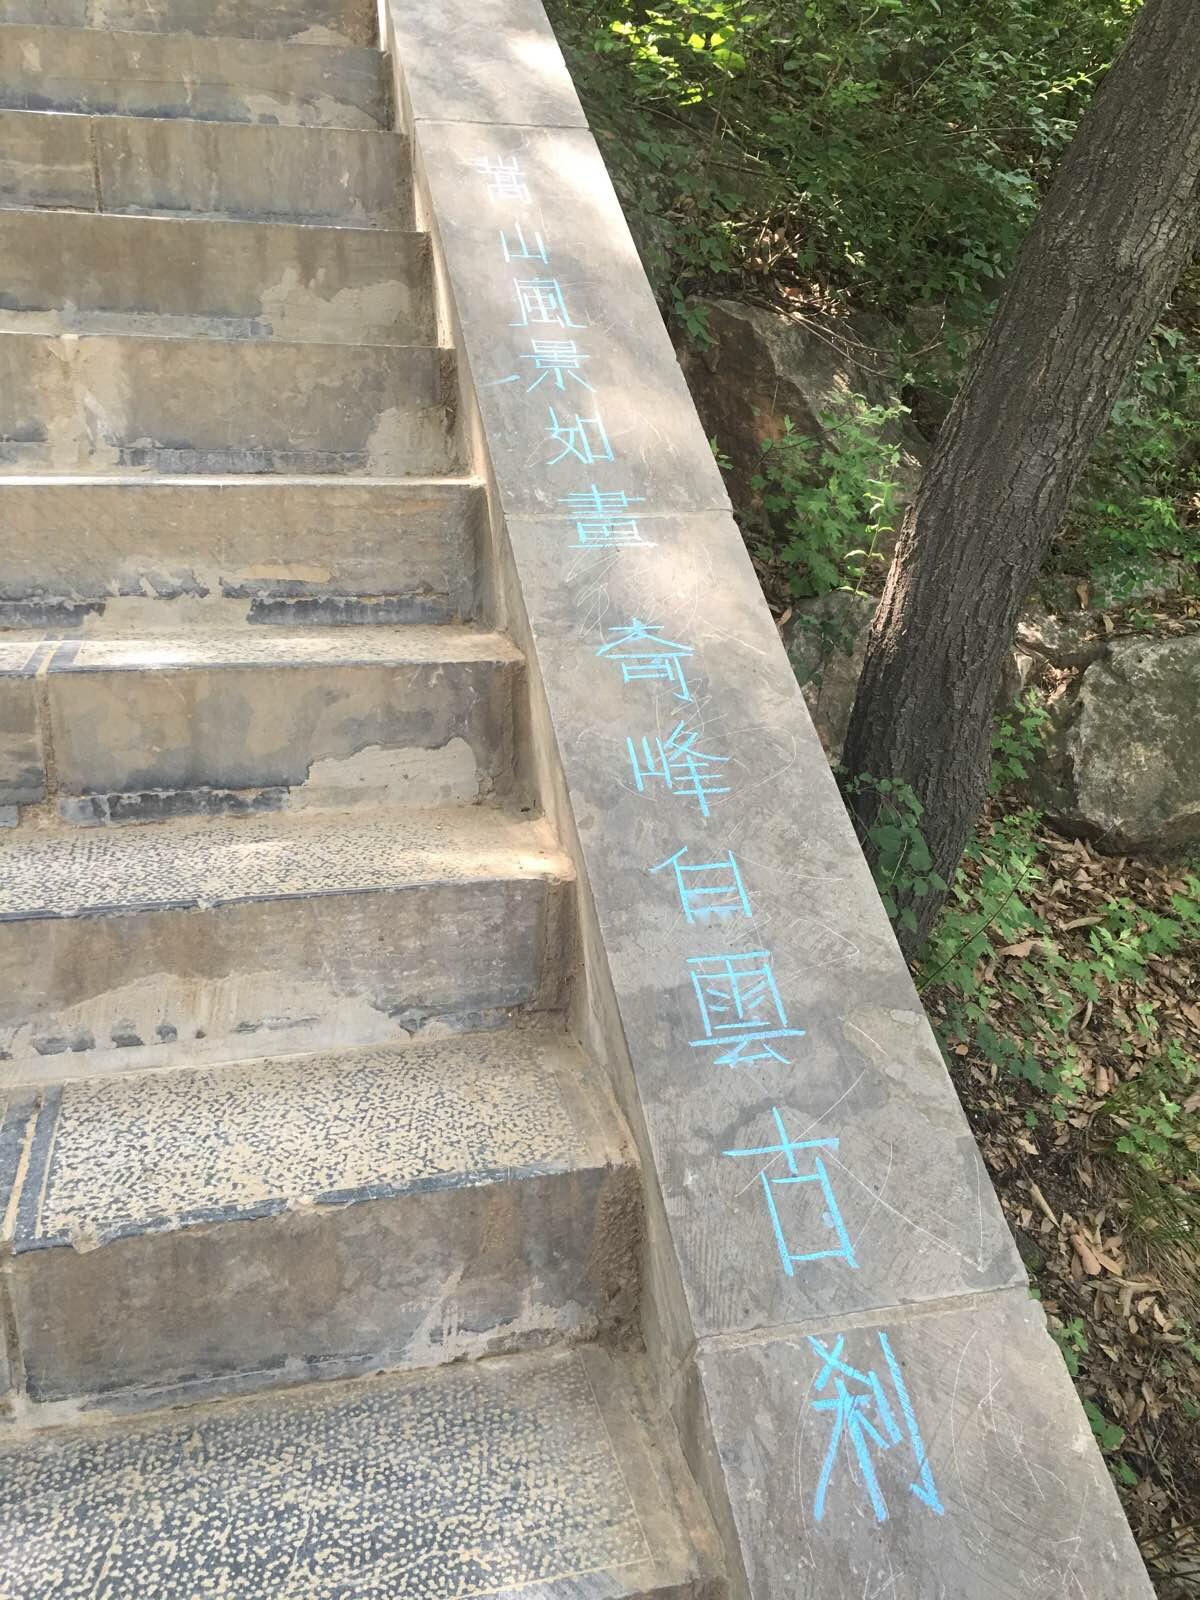 嵩山風景如畫奇峰白雲古刹